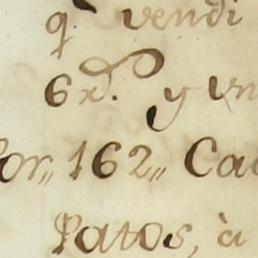 q.e vendi
6 rs. y un
por,, 162,, Ca
Patos, à